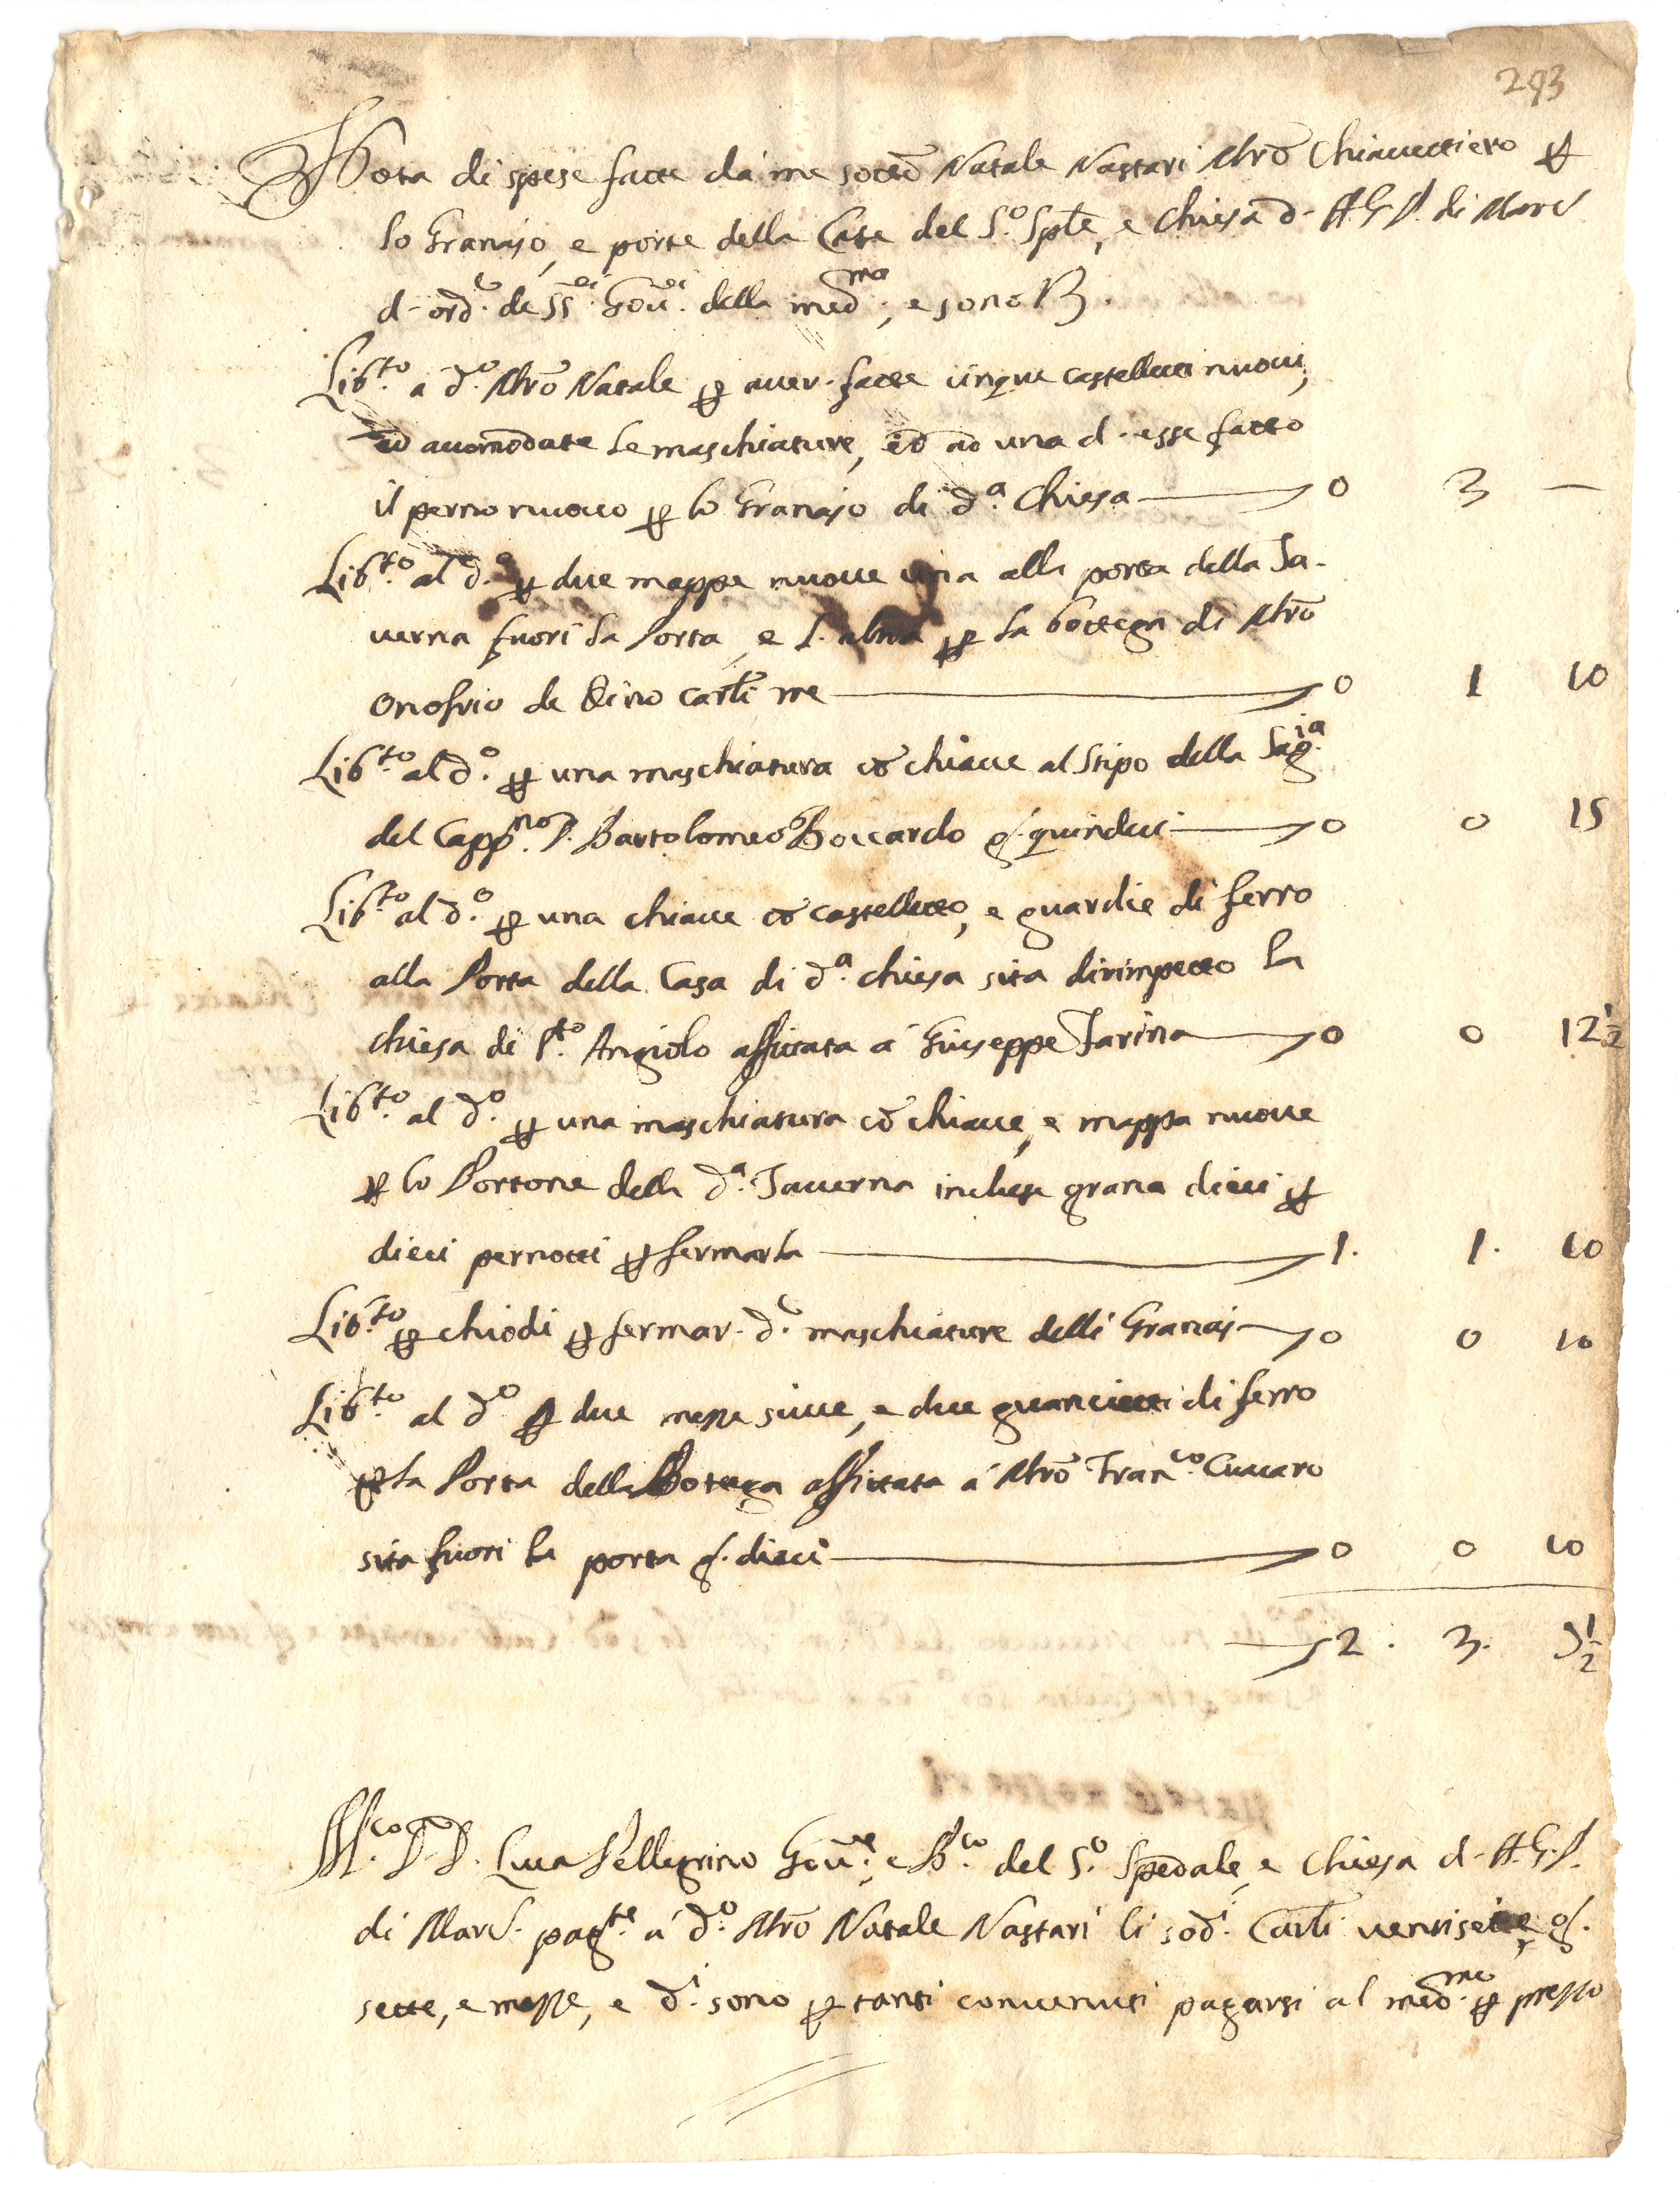 293
Nota di spese fatte da me sottō Natale Nastari Mrō Chiavettiero p
lo Granajo, e porte della Casa del S.º Spłe, e Chiesa d- A.G.P. di Marć
d- ord.ᵉ de SS.ʳⁱ Gov.ʳⁱ della med.ᵐᵃ, e sono
Lib.ᵗᵒ a d.º Mrō Natale p aver- fatte cinque castelletti nuovi,
ed accomodate le maschiature, ed ad una d- esse fatto
il perno nuovo p lo Granajo di d.ª Chiesa 0 3 —
Lib.ᵗᵒ al d.º p due mappe nuove una alla porta della Ta-
verna fuori la Porta, e l- altra p la bottega di Mrō
Onofrio de carłi tre 0 1 10
Lib.ᵗᵒ al d.º p una maschiatura cō chiave al Stipo della Sag.ⁱᵃ
del Capp.ⁿᵒ D. Bartolomeo Boccardo g. quindeci 0 0 15
Lib.ᵗᵒ al d.º p una chiave cō castelletto, e guardie di ferro
alla Porta della Casa di d.ª chiesa sita dirimpetto la
chiesa di S.ᵗᵒ Angiolo affittata a Giuseppe Farina 0 0 12½
Lib.ᵗᵒ al d.º p una maschiatura cō chiave, e mappa nuove
p lo Portone della d.ª Taverna incluse grana dieci p
dieci pernotti p fermarla 1. 1. 10
Lib.ᵗᵒ p chiodi p fermar- d.ᵉ maschiature delli Granaj 0 0 10
Lib.ᵗᵒ al d.º p due e due di ferro
p la Porta della Bottega affittata a Mrō Fran.ᶜᵒ Cuccaro
sita fuori la porta g. dieci 0 0 10
2. 3. 7½
M.ᶜᵒ D. Luca Pellegrino Gov.ʳᵉ, e B.ᶜᵒ del S.º Spedale, e Chiesa d- A.G.P.
di Marć. pag.ᵗᵉ a d.º Mrō Natale Nastari li sod.ⁱ Carłi ventisette, g.
sette, e mezze, e d.ⁱ sono p tanti convenuti pagarsi al med.ᵐᵒ p prezzo